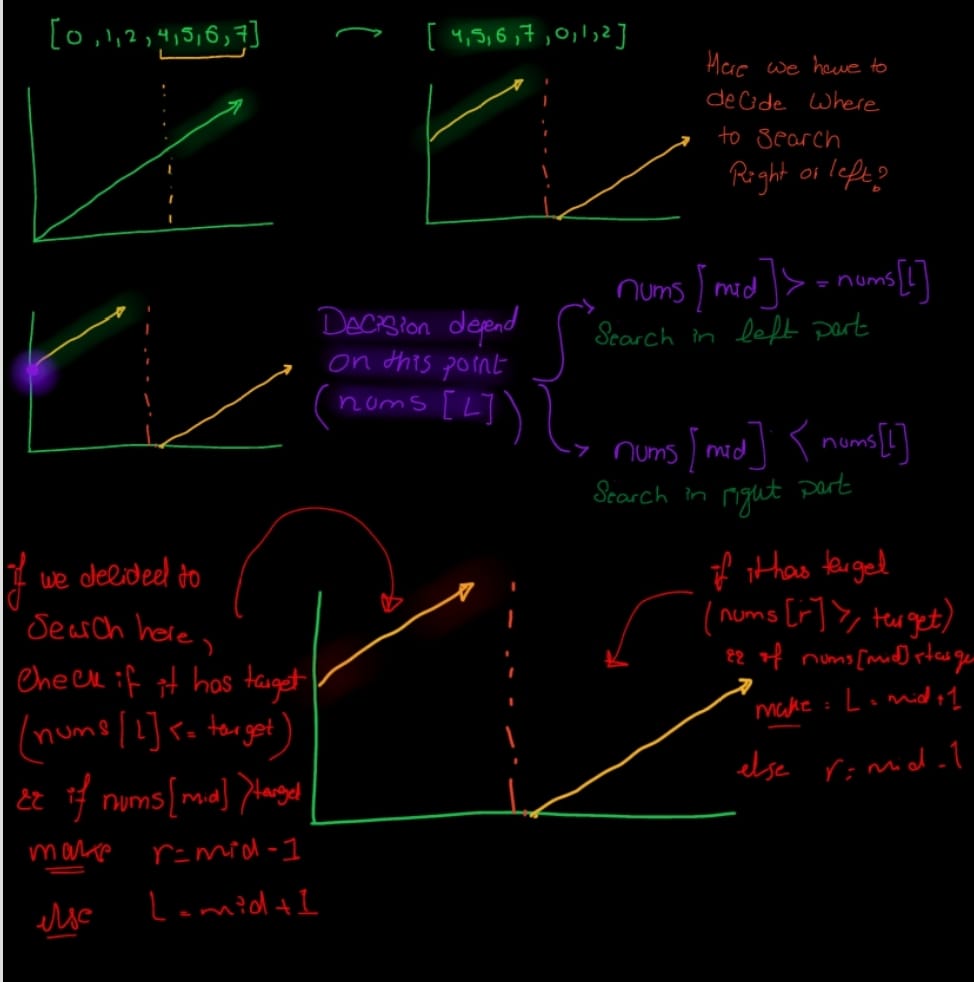 [0,1,2,4,5,6,7]
[4,5,6,7,0,1,2]
Here we have to
decide where
to search
Right or left?
Decision depend
on this point
(nums [L])
nums [mid] >= nums[l]
Search in left part
nums [mid] < nums[l]
Search in right part
if we decided to
search here,
check if it has target
(nums [l] <= target)
&& if nums[mid] > target
make r=mid-1
else L=mid+1
if it has target
(nums [r] >= target)
&& if nums[mid] < targe
make : L = mid+1
else r = mid-1